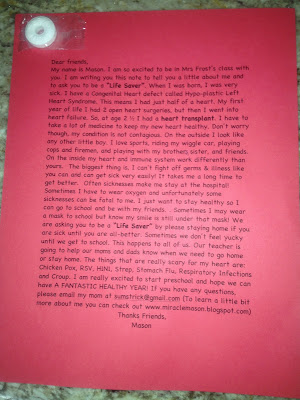 Dear friends,
My name is Mason. I am so excited to be in Mrs Frost's class with
you. I am writing you this note to tell you a little about me and
to ask you to be a "Life Saver". When I was born, I was very
sick. I have a Congenital Heart defect called Hypo-plastic Left
Heart Syndrome. This means I had just half of a heart. My first
year of life I had 2 open heart surgeries, but then I went into
heart failure. So, at age 2 ½ I had a heart transplant. I have to
take a lot of medicine to keep my new heart healthy. Don't worry
though, my condition is not contagious. On the outside I look like
any other little boy. I love sports, riding my wiggle car, playing
cops and firemen, and playing with my brother, sister, and friends.
On the inside my heart and immune system work differently than
yours. The biggest thing is, I can't fight off germs & illness like
you can and can get sick very easily! It takes me a long time to
get better. Often sicknesses make me stay at the hospital!
Sometimes I have to wear oxygen and unfortunately some
sicknesses can be fatal to me. I just want to stay healthy so I
can go to school and be with my friends. Sometimes I may wear
a mask to school but know my smile is still under that mask! We
are asking you to be a "Life Saver" by please staying home if you
are sick until you are all-better. Sometimes we don't feel yucky
until we get to school. This happens to all of us. Our teacher is
going to help our moms and dads know when we need to go home
or stay home. The things that are really scary for my heart are:
Chicken Pox, RSV, H1N1, Strep, Stomach Flu, Respiratory Infections
and Croup. I am really excited to start preschool and hope we can
have A FANTASTIC HEALTHY YEAR! If you have any questions,
please email my mom at sumstrick@gmail.com (To learn a little bit
more about me you can check out www.miraclemason.blogspot.com)
Thanks Friends,
Mason